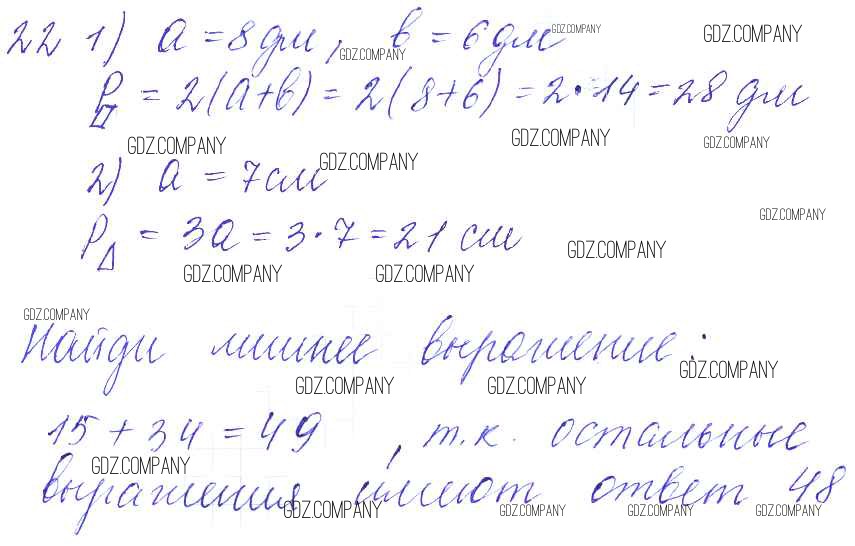 22 1) a = 8 дм, в = 6 дм
GDZ.COMPANY GDZ.COMPANY GDZ.COMPANY
P▱ = 2(a+в) = 2(8+6) = 2·14 = 28 дм
GDZ.COMPANY GDZ.COMPANY GDZ.COMPANY
2) a = 7 см
GDZ.COMPANY GDZ.COMPANY
P△ = 3a = 3·7 = 21 см
GDZ.COMPANY GDZ.COMPANY GDZ.COMPANY
GDZ.COMPANY
Найди лишнее выражение:
GDZ.COMPANY GDZ.COMPANY GDZ.COMPANY
15 + 34 = 49, т.к. остальные
GDZ.COMPANY
выражения имеют ответ 48
GDZ.COMPANY GDZ.COMPANY GDZ.COMPANY GDZ.COMPANY